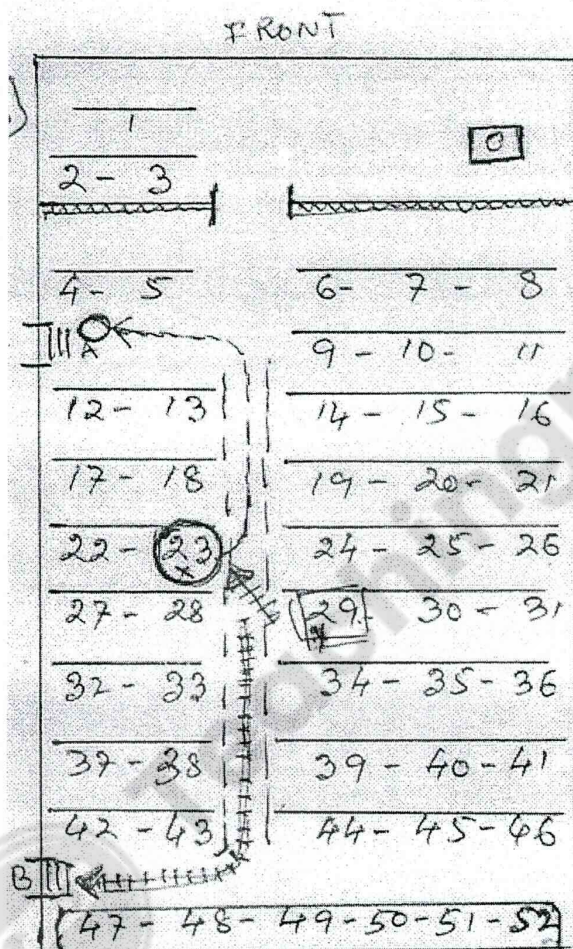 FRONT
1
0
2 - 3
4 - 5 6 - 7 - 8
A
9 - 10 - 11
12 - 13 14 - 15 - 16
17 - 18 19 - 20 - 21
22 - 23 24 - 25 - 26
x
27 - 28 29 - 30 - 31
32 - 33 34 - 35 - 36
37 - 38 39 - 40 - 41
42 - 43 44 - 45 - 46
B
47 - 48 - 49 - 50 - 51 - 52